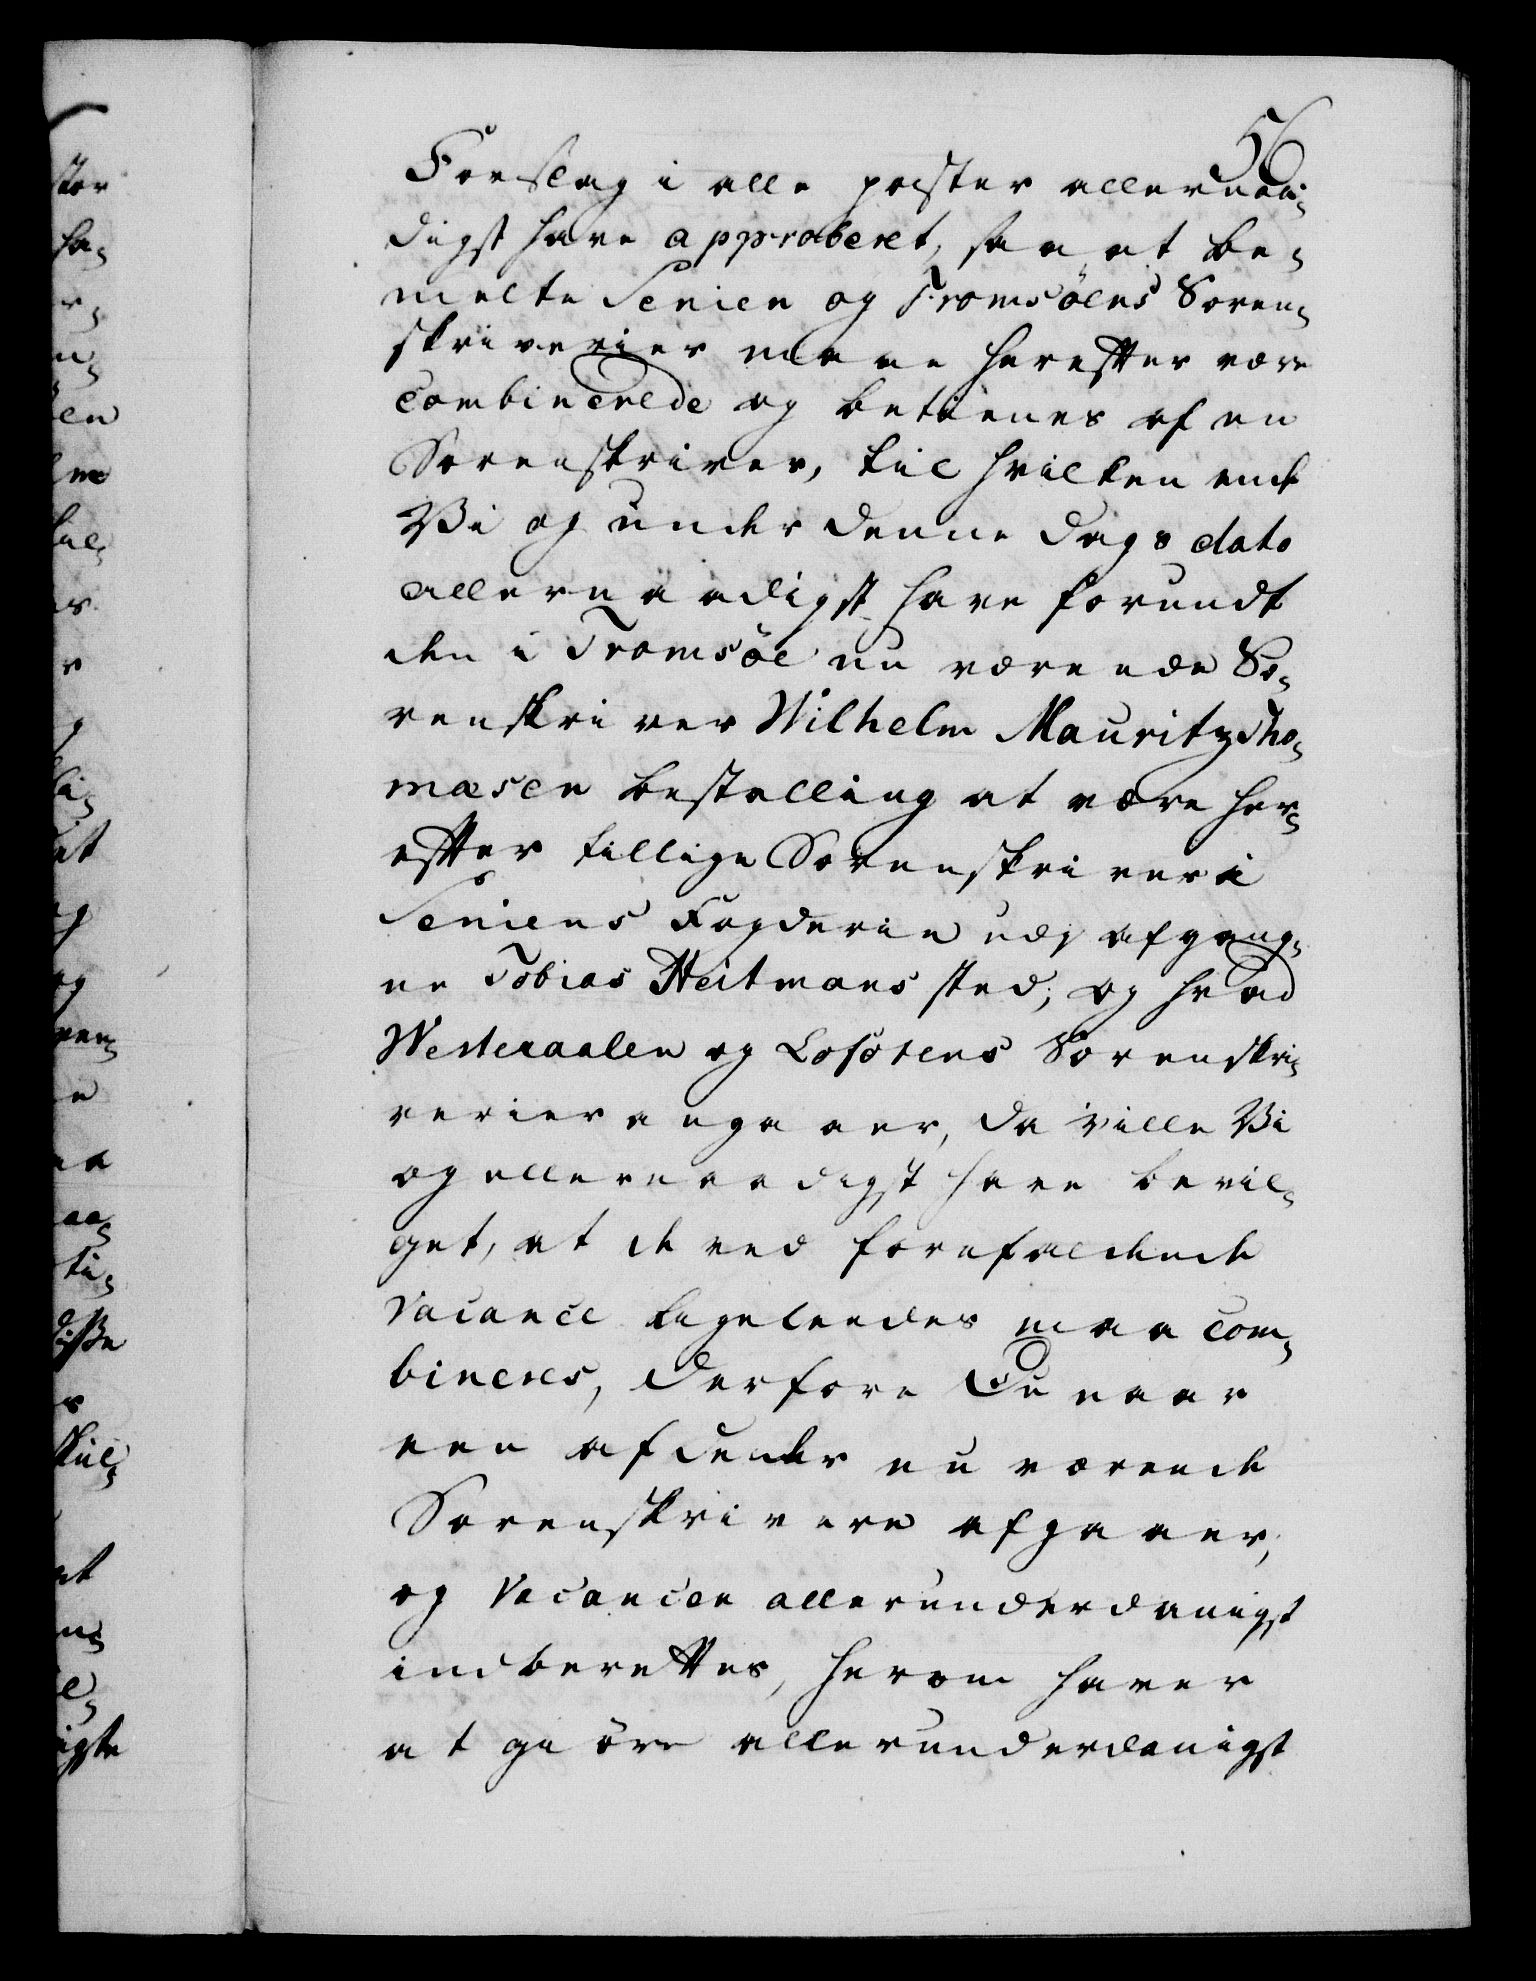 56
Forslag i alle poster allernaa-
digst have approberet, saa at be-
melte Senien og Tromsöens Soren-
skriverier maae herefter være
combinerede og betienes af en
Sorenskriver, til hvilken ende
Vi og under denne Dags dato
allernaadigst have forundt
den i Tromsöe nu værende So-
renskriver Wilhelm Mauritz Tho-
mæsen bestalling at være her-
efter tillige Sorenskriver i
Seniens Fogderie udj afgang-
ne Tobias Heitmans sted; og hvad
Westeraalen og Lofotens Sorenskri-
verier angaaer, da ville Vi
og allernaadigst have bevil-
get, at de ved forefaldende
Vacance ligeleedes maa com-
bineres, derfore Du naar
een af de nu værende
Sorenskrivere afgaaer,
og Vacancen allerunderdanigst
indberettes, herom haver
at giöre allerunderdanigst